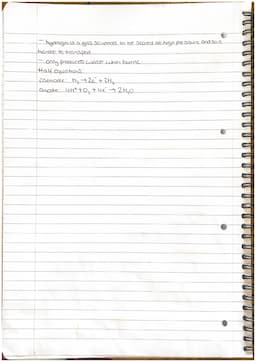 - hydrogen is a gas so needs to be stored at high pressure and so is
harder to transport
- only produces water when burns
Half equations:
cathode: H₂ → 2e⁻ + 2H₊
anode: 4H⁺ + O₂ + 4e⁻ → 2H₂O